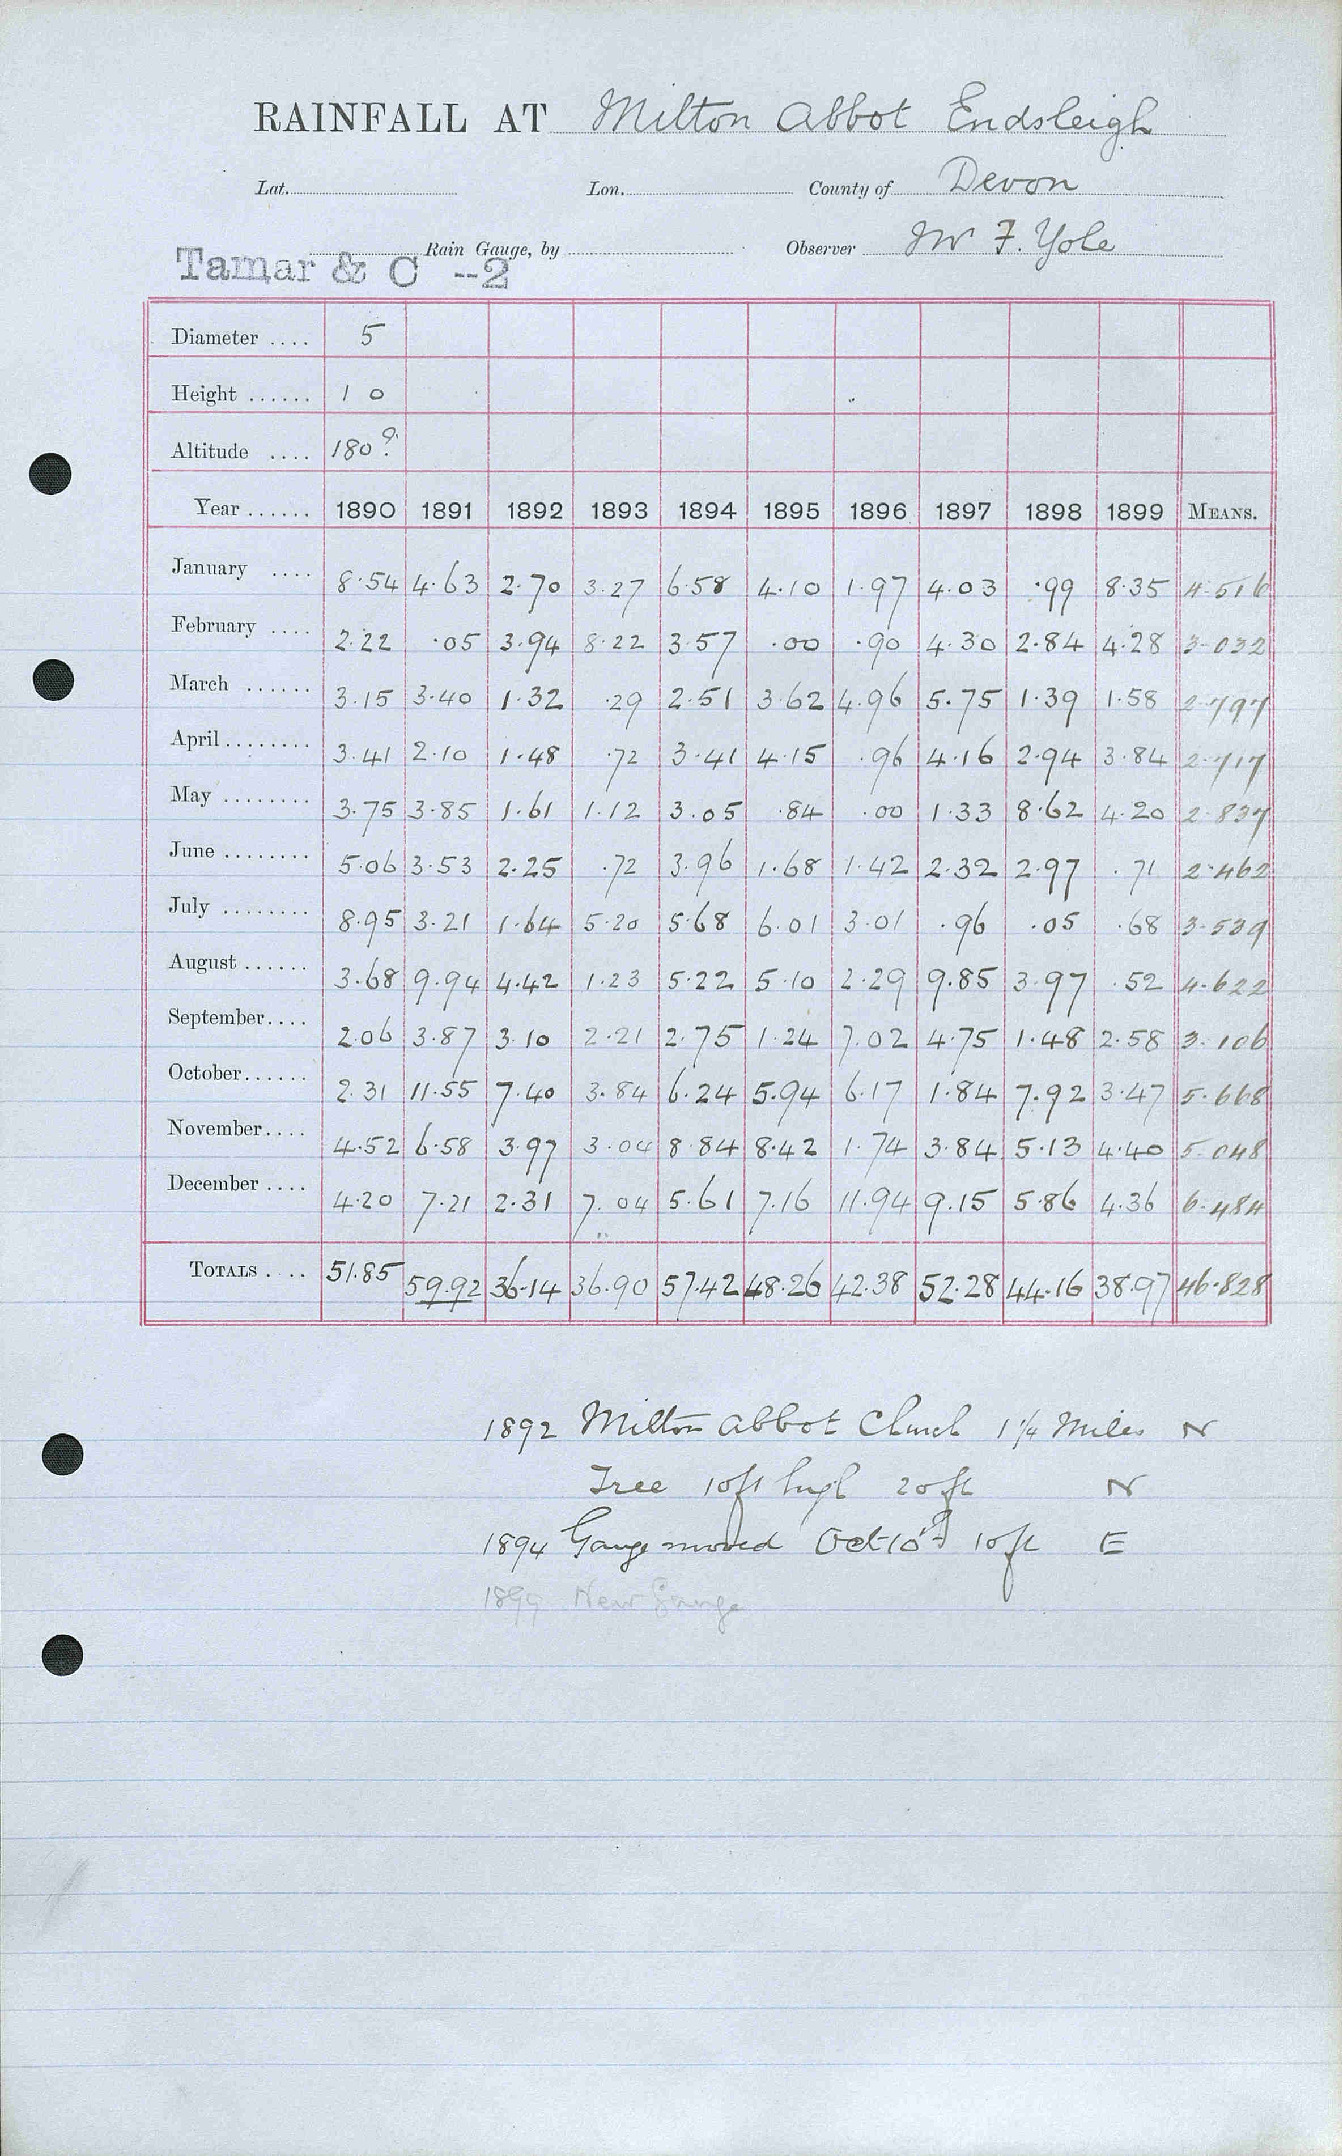 RAINFALL AT Milton Abbot Endsleigh
Lat. Lon. County of Devon
Rain Gauge, by Observer Mr F. Yole
Tamar & C --2
Diameter .... 5
Height ...... 1 0
Altitude .... 180?
Year ...... 1890 1891 1892 1893 1894 1895 1896 1897 1898 1899 MEANS.
January .... 8.54 4.63 2.70 3.27 6.58 4.10 1.97 4.03 .99 8.35 4.516
February .... 2.22 .05 3.94 8.22 3.57 .00 .90 4.30 2.84 4.28 3.032
March ...... 3.15 3.40 1.32 .29 2.51 3.62 4.96 5.75 1.39 1.58 2.797
April ........ 3.41 2.10 1.48 .72 3.41 4.15 .96 4.16 2.94 3.84 2.717
May ........ 3.75 3.85 1.61 1.12 3.05 .84 .00 1.33 8.62 4.20 2.837
June ........ 5.06 3.53 2.25 .72 3.96 1.68 1.42 2.32 2.97 .71 2.462
July ........ 8.95 3.21 1.64 5.20 5.68 6.01 3.01 .96 .05 .68 3.539
August ...... 3.68 9.94 4.42 1.23 5.22 5.10 2.29 9.85 3.97 .52 4.622
September.... 2.06 3.87 3.10 2.21 2.75 1.24 7.02 4.75 1.48 2.58 3.106
October...... 2.31 11.55 7.40 3.84 6.24 5.94 6.17 1.84 7.92 3.47 5.668
November.... 4.52 6.58 3.97 3.04 8.84 8.42 1.74 3.84 5.13 4.40 5.048
December .... 4.20 7.21 2.31 7.04 5.61 7.16 11.94 9.15 5.86 4.36 6.484
TOTALS .... 51.85 59.92 36.14 36.90 57.42 48.26 42.38 52.28 44.16 38.97 46.828
1892 Milton Abbot Church 1¼ Miles N
Tree 10ft high 20ft N
1894 Gauge moved Oct 10th 10ft E
1899 New Gauge